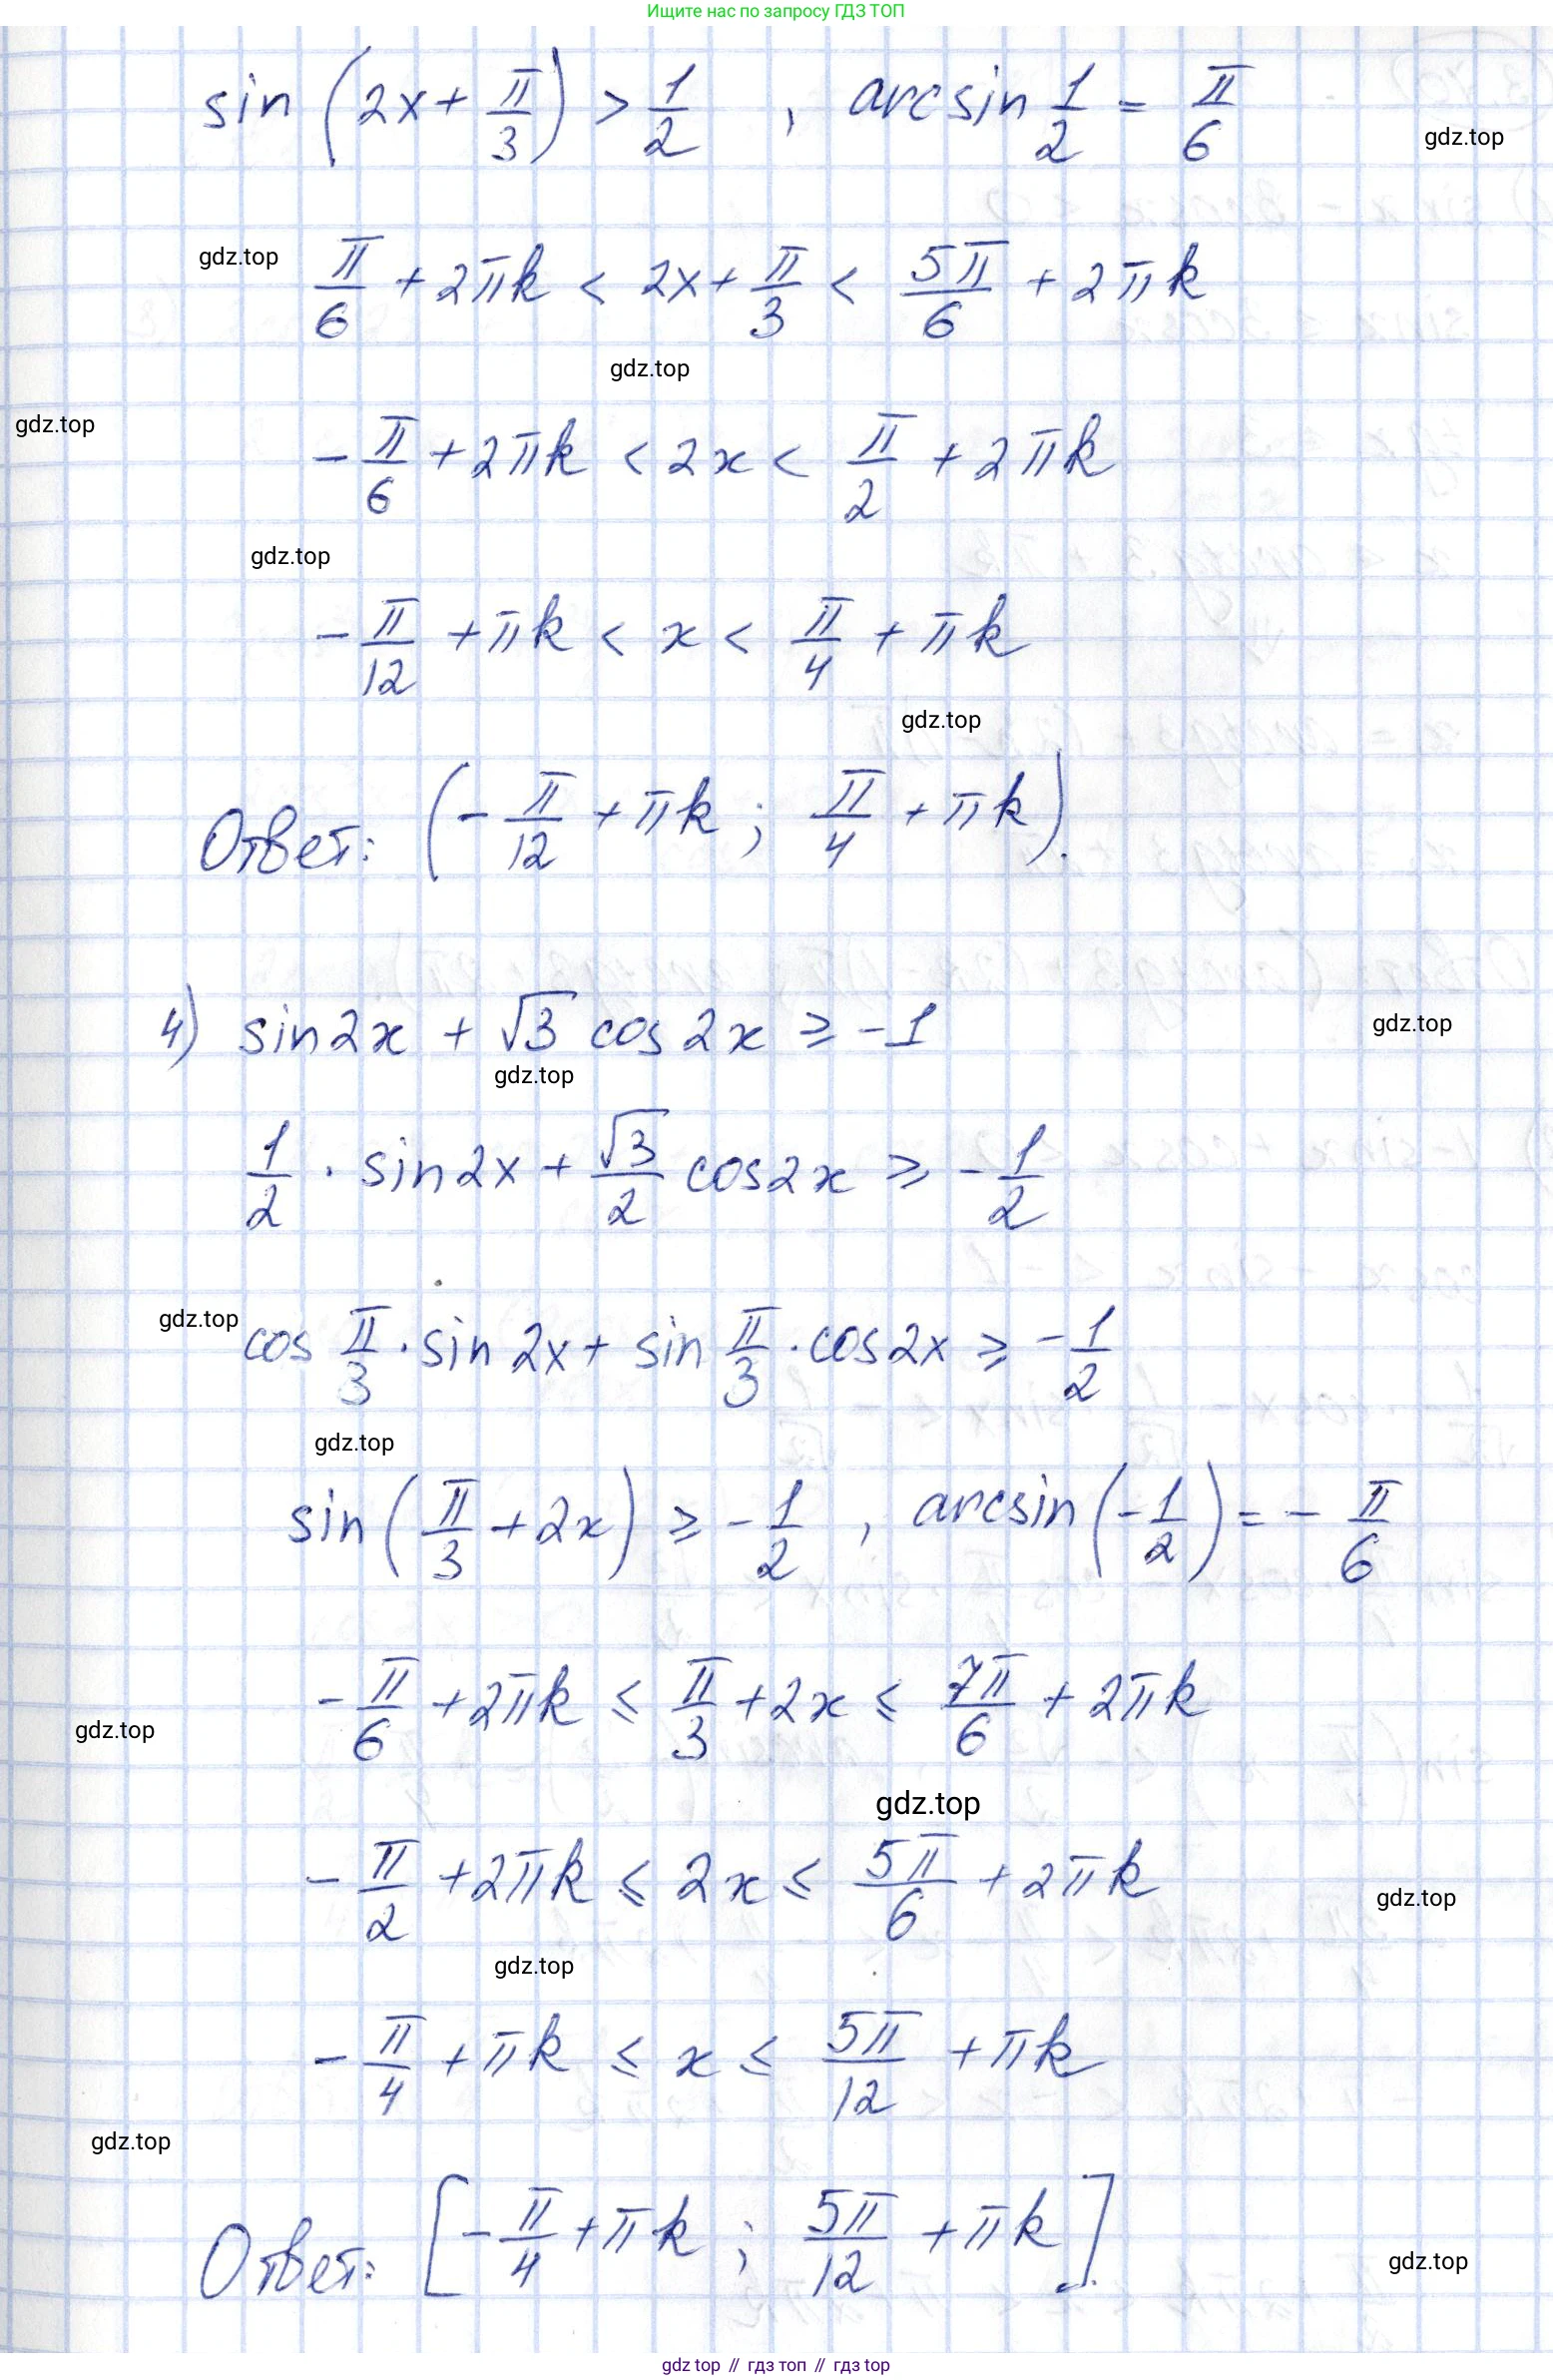 Ищите нас по запросу ГДЗ ТОП
sin (2x + π/3) > 1/2 , arcsin 1/2 = π/6
gdz.top
gdz.top
π/6 + 2πk < 2x + π/3 < 5π/6 + 2πk
gdz.top
gdz.top
-π/6 + 2πk < 2x < π/2 + 2πk
gdz.top
-π/12 + πk < x < π/4 + πk
gdz.top
Ответ: (-π/12 + πk ; π/4 + πk).
4) sin2x + √3 cos2x ≥ -1
gdz.top
gdz.top
1/2 · sin2x + √3/2 cos2x ≥ -1/2
gdz.top
cos π/3 · sin2x + sin π/3 · cos2x ≥ -1/2
gdz.top
sin (π/3 + 2x) ≥ -1/2 , arcsin (-1/2) = -π/6
-π/6 + 2πk ≤ π/3 + 2x ≤ 7π/6 + 2πk
gdz.top
gdz.top
-π/2 + 2πk ≤ 2x ≤ 5π/6 + 2πk
gdz.top
gdz.top
-π/4 + πk ≤ x ≤ 5π/12 + πk
gdz.top
Ответ: [-π/4 + πk ; 5π/12 + πk].
gdz.top
gdz top // гдз топ // гдз top